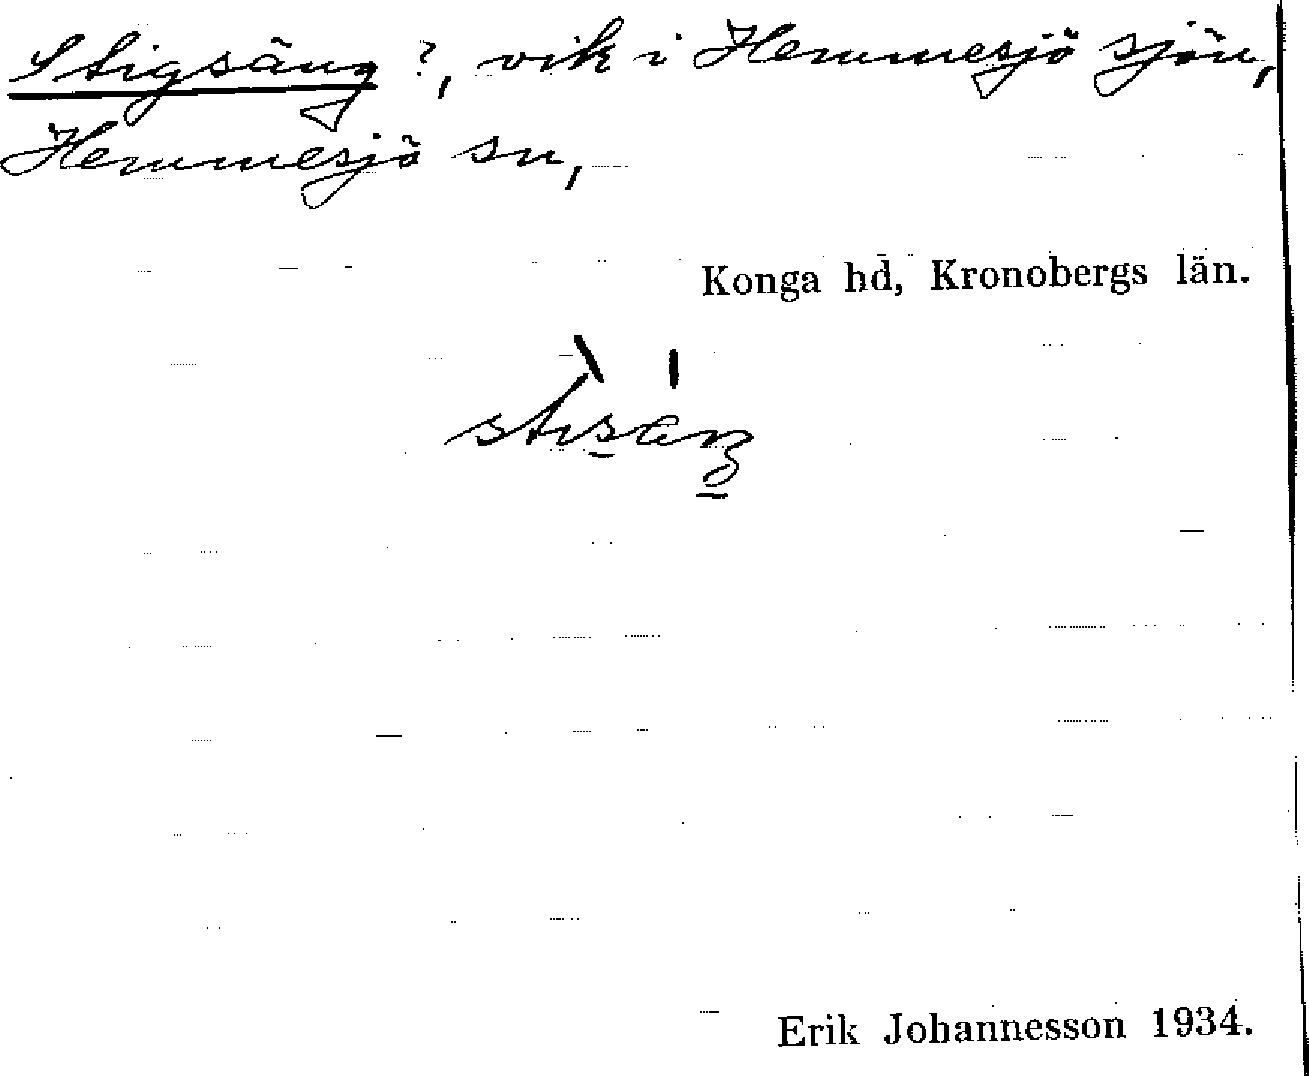 Stigsäng?, vik i Hemmesjö sjön,
Hemmesjö sn,
Konga hd, Kronobergs län.
Erik Johannesson 1934.